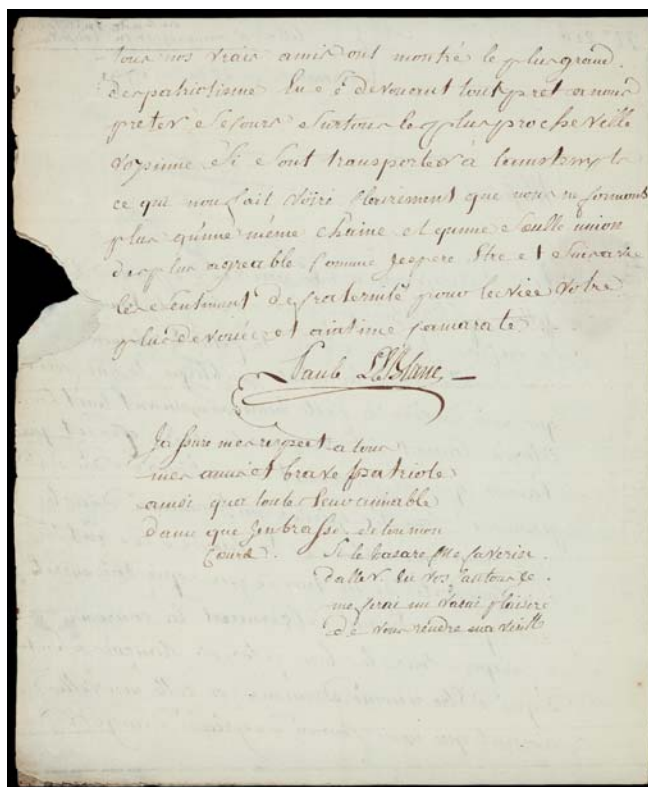 tous nos vrais amis ont montré le plus grand
despatriotisme En e devouant tout pret a nous
preter secours surtous les plus proche ville
dopinne Si Sont transporter à
ce qui nou fait voire Clairement que nous ne formons
plus qu'une même chaine et quune seulle union
des plus agreable Comme Jespere Etre et suis avec
le sentiment de fraternité pour la vie votre
plus devouée et aintime Camarate
Paul LeBlanc
Jassure mes respect a tous
mes amis et brave patriote
ainsi qua toute leur aimable
dame que Jenbrasse de tou mon
Coeurs. Si le hasare me faverise
daller En vos Cantons Je
me ferai un vraie plaisire
de vous rendre ma visitte